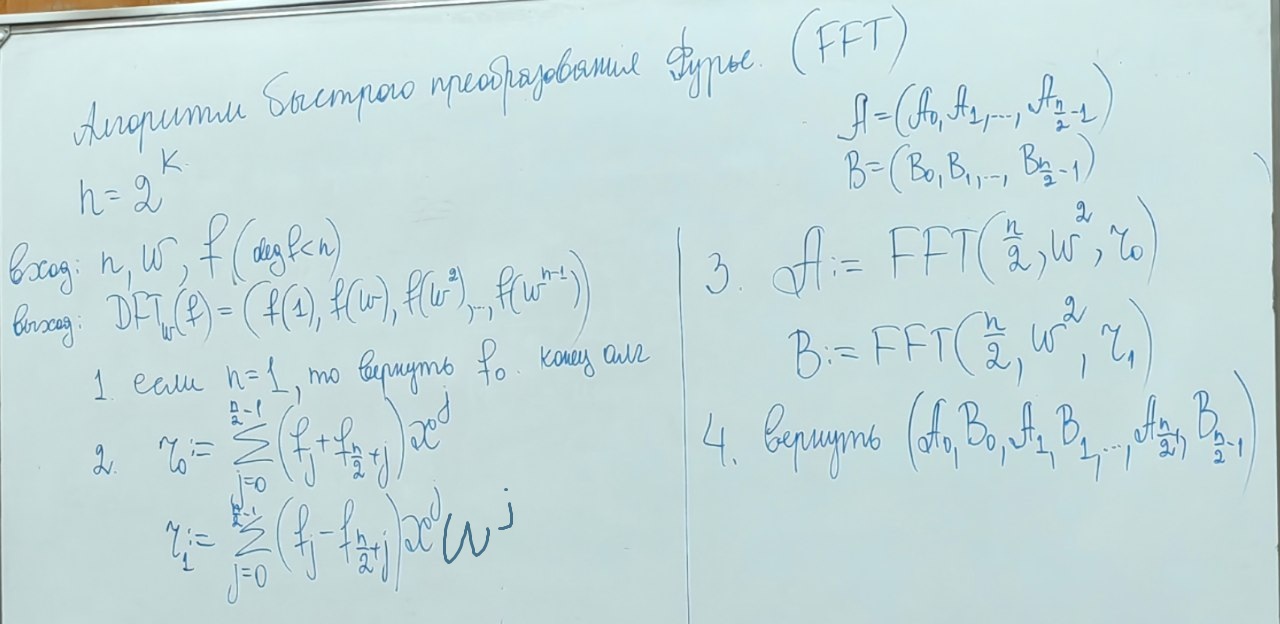 Алгоритм быстрого преобразования Фурье. (FFT)
n = 2^k.
вход: n, w, f (deg f < n)
выход: DFT_w(f) = (f(1), f(w), f(w^2), ..., f(w^{n-1}))
1. если n=1, то вернуть f_0. конец алг
2. r_0 := \sum_{j=0}^{n/2-1} (f_j + f_{n/2+j}) x^j
r_1 := \sum_{j=0}^{n/2-1} (f_j - f_{n/2+j}) x^j w^j
A = (A_0, A_1, ..., A_{n/2-1})
B = (B_0, B_1, ..., B_{n/2-1})
3. A := FFT(n/2, w^2, r_0)
B := FFT(n/2, w^2, r_1)
4. вернуть (A_0, B_0, A_1, B_1, ..., A_{n/2-1}, B_{n/2-1})